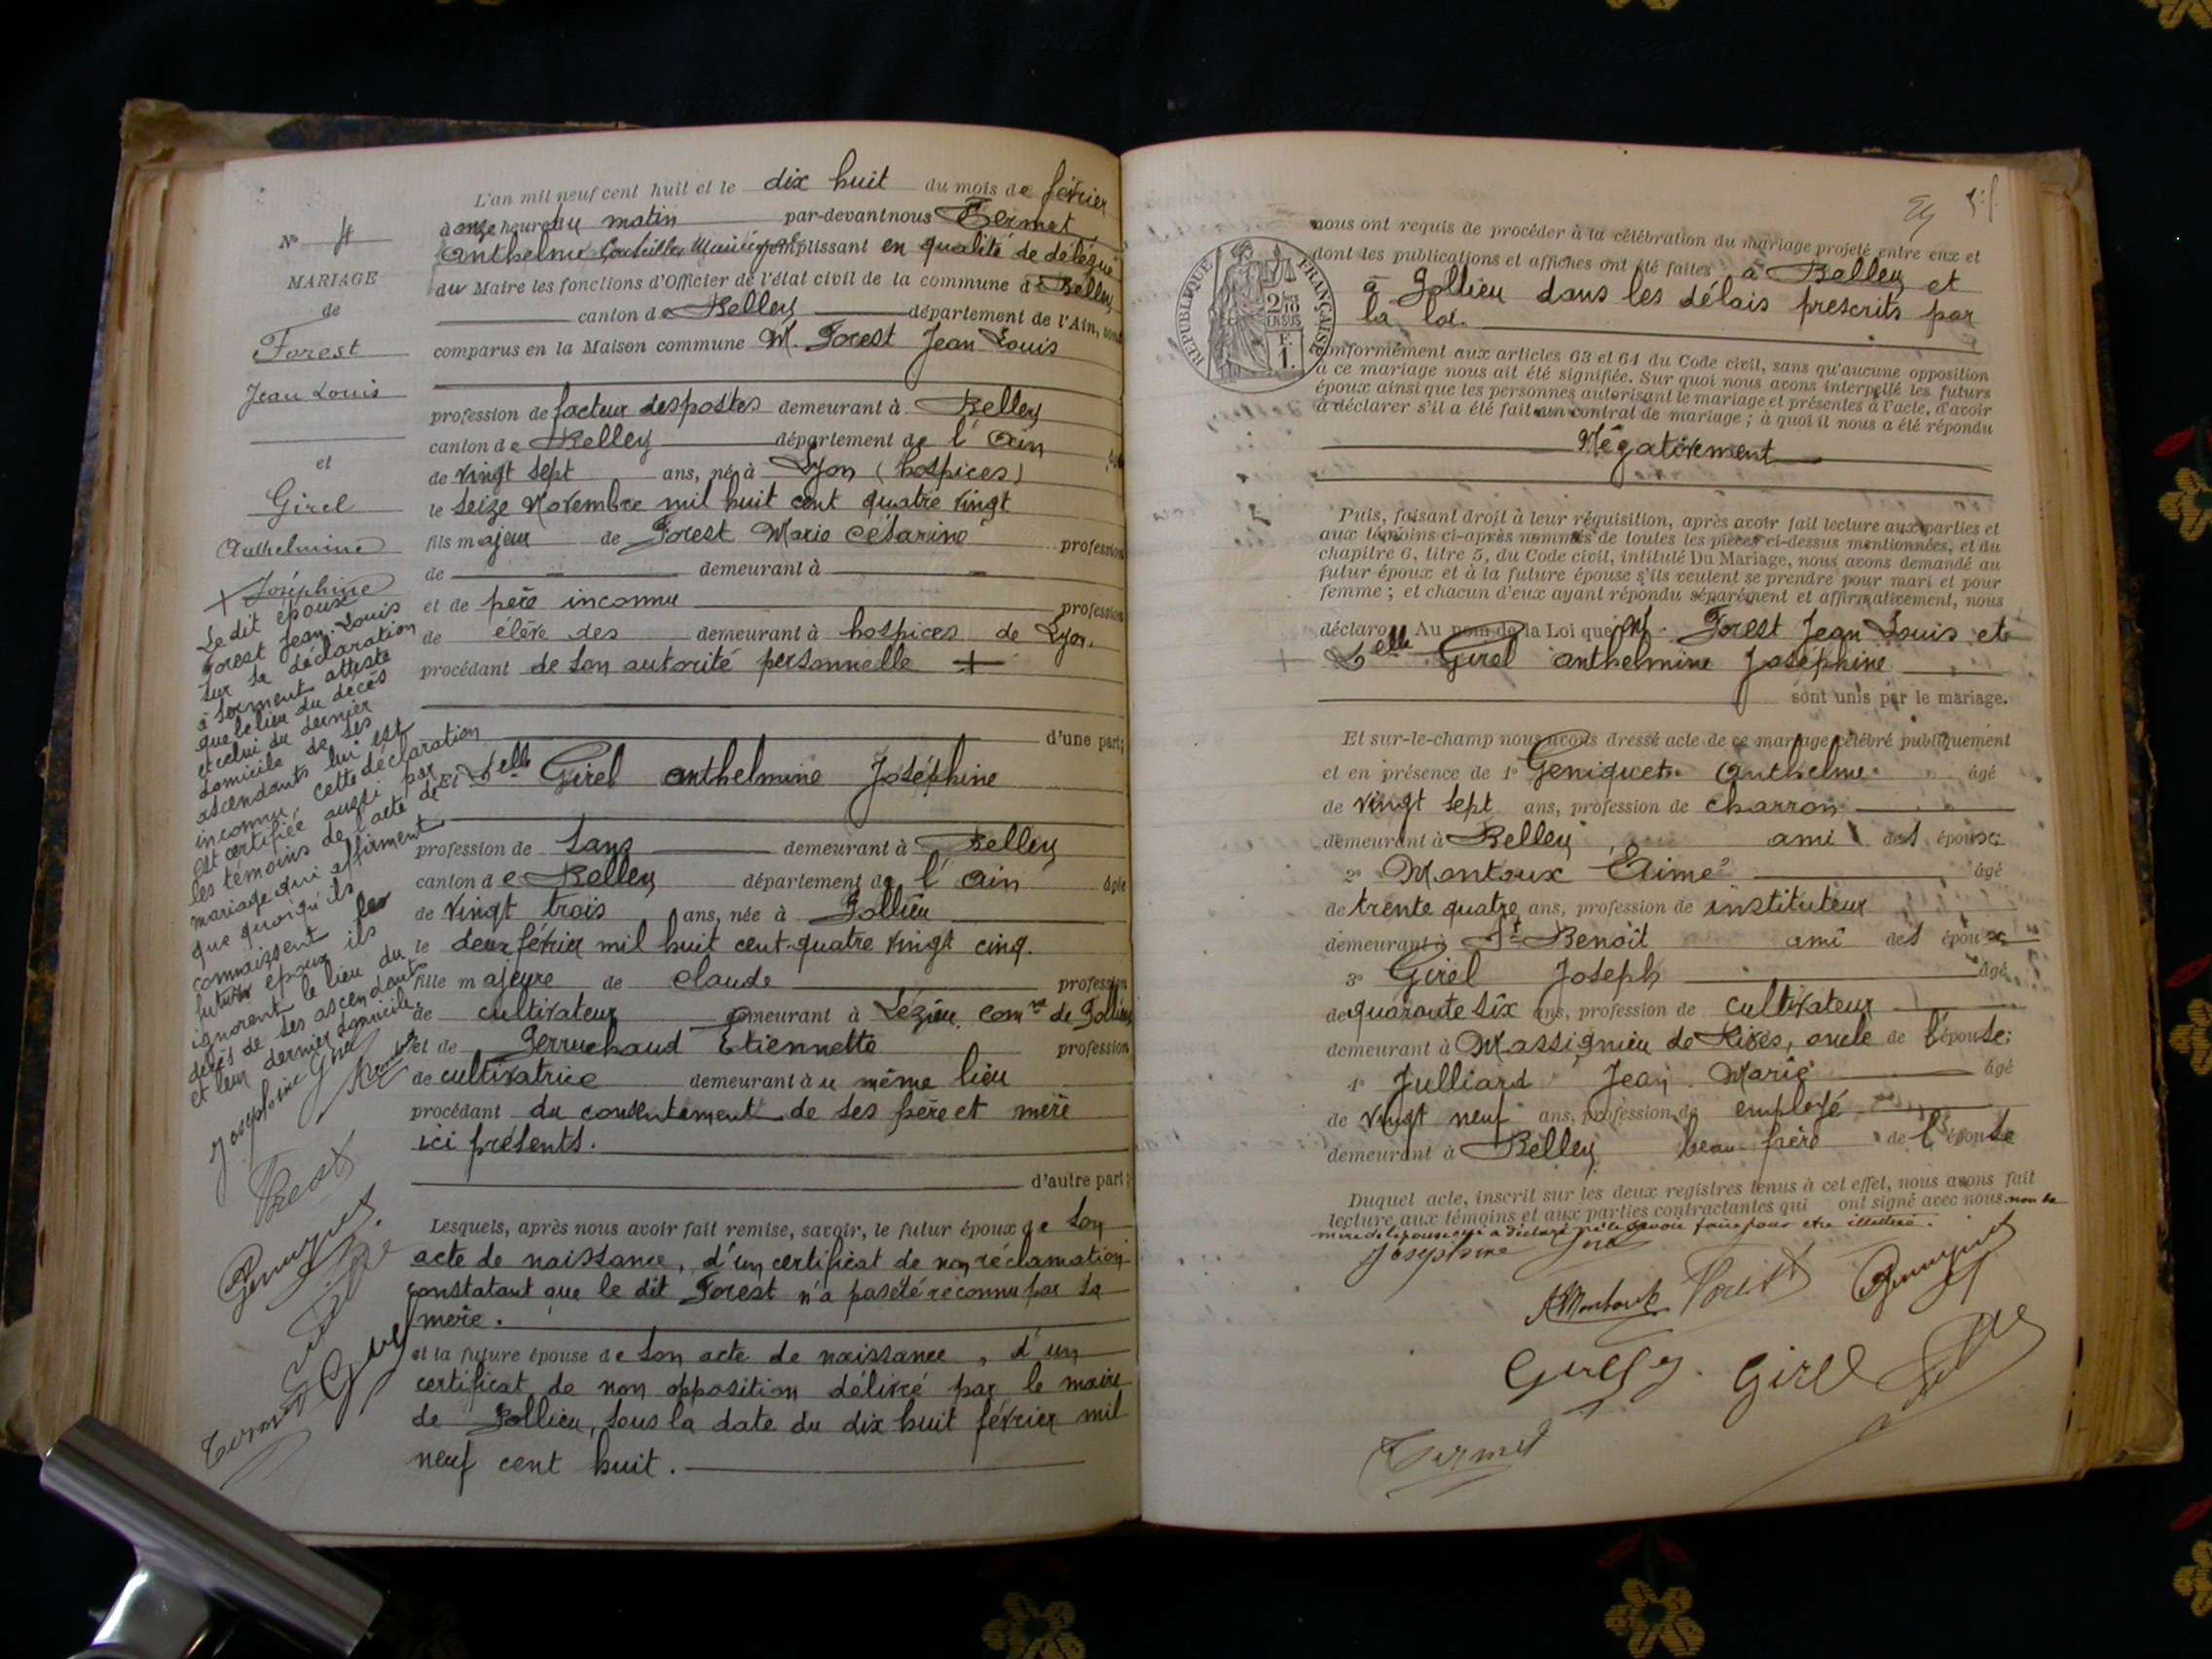 L'an mil neuf cent huit et le dix huit du mois de février
à onze heures du matin par-devant nous Termet
Anthelme Conseiller Municipal remplissant en qualité de délégué
du Maire les fonctions d'Officier de l'état civil de la commune de Belley
canton de Belley département de l'Ain, sont
comparus en la Maison commune M. Forest Jean Louis
profession de facteur des postes demeurant à Belley
canton de Belley département de l'Ain âgé
de vingt sept ans, né à Lyon (hospices)
le seize Novembre mil huit cent quatre vingt
fils majeur de Forest Marie Césarine profession
de demeurant à
et de père inconnu profession
de élève des demeurant à hospices de Lyon.
procédant de son autorité personnelle +
d'une part;
Et Delle Girel Anthelmine Joséphine
profession de sans demeurant à Belley
canton de Belley département de l'Ain âgée
de vingt trois ans, née à Pollieu
le deux février mil huit cent quatre vingt cinq.
fille majeure de Claude profession
de cultivateur demeurant à Lézieu comne de Pollieu
et de Perruchaud Etiennette profession
de cultivatrice demeurant au même lieu
procédant du consentement de ses père et mère
ici présents.
d'autre part;
Lesquels, après nous avoir fait remise, savoir, le futur époux de son
acte de naissance, d'un certificat de non réclamation
constatant que le dit Forest n'a pas été reconnu par sa
mère.
et la future épouse de son acte de naissance, d'un
certificat de non opposition délivré par le maire
de Pollieu, sous la date du dix huit février mil
neuf cent huit.
No 4
MARIAGE
de
Forest
Jean Louis
et
Girel
Anthelmine
Joséphine
+ Le dit époux
Forest Jean-Louis
sur sa déclaration
à serment atteste
que le lieu du décès
et celui du dernier
domicile de ses
ascendants lui est
inconnu, cette déclaration
est certifiée aussi par
les témoins de l'acte de
mariage qui affirment
que quoiqu'ils
connaissent les
futurs époux ils
ignorent le lieu du
décès de ses ascendants
et leur dernier domicile.
Joséphine Girel
Forest
Termet
nous ont requis de procéder à la célébration du mariage projeté entre eux et
dont les publications et affiches ont été faites à Belley et
à Pollieu dans les délais prescrits par
la loi.
RÉPUBLIQUE FRANÇAISE
2/10 EN SUS
F. 1.
conformément aux articles 63 et 64 du Code civil, sans qu'aucune opposition
à ce mariage nous ait été signifiée. Sur quoi nous avons interpellé les futurs
époux ainsi que les personnes autorisant le mariage et présentes à l'acte, d'avoir
à déclarer s'il a été fait un contrat de mariage; à quoi il nous a été répondu
Négativement
Puis, faisant droit à leur réquisition, après avoir fait lecture aux parties et
aux témoins ci-après nommés de toutes les pièces ci-dessus mentionnées, et du
chapitre 6, titre 5, du Code civil, intitulé Du Mariage, nous avons demandé au
futur époux et à la future épouse s'ils veulent se prendre pour mari et pour
femme; et chacun d'eux ayant répondu séparément et affirmativement, nous
déclarons Au nom de la Loi que M. Forest Jean Louis et
Delle Girel Anthelmine Joséphine
sont unis par le mariage.
Et sur-le-champ nous avons dressé acte de ce mariage célébré publiquement
et en présence de 1° Geniquet Anthelme âgé
de vingt sept ans, profession de charron
demeurant à Belley ami des époux;
2° Montoux Aimé âgé
de trente quatre ans, profession de instituteur
demeurant à St Benoît ami des époux
3° Girel Joseph âgé
de quarante six ans, profession de cultivateur
demeurant à Massignieu de Rives, oncle de l'épouse;
4° Julliard Jean Marie âgé
de vingt neuf ans, profession de employé
demeurant à Belley beau-frère de l'épouse
Duquel acte, inscrit sur les deux registres tenus à cet effet, nous avons fait
lecture aux témoins et aux parties contractantes qui ont signé avec nous non la
mère de l'épouse qui a déclaré ne le savoir faire pour être illettrée.
Joséphine Girel
AMontoux Forest Geniquet
Girel J. Girel
Termet